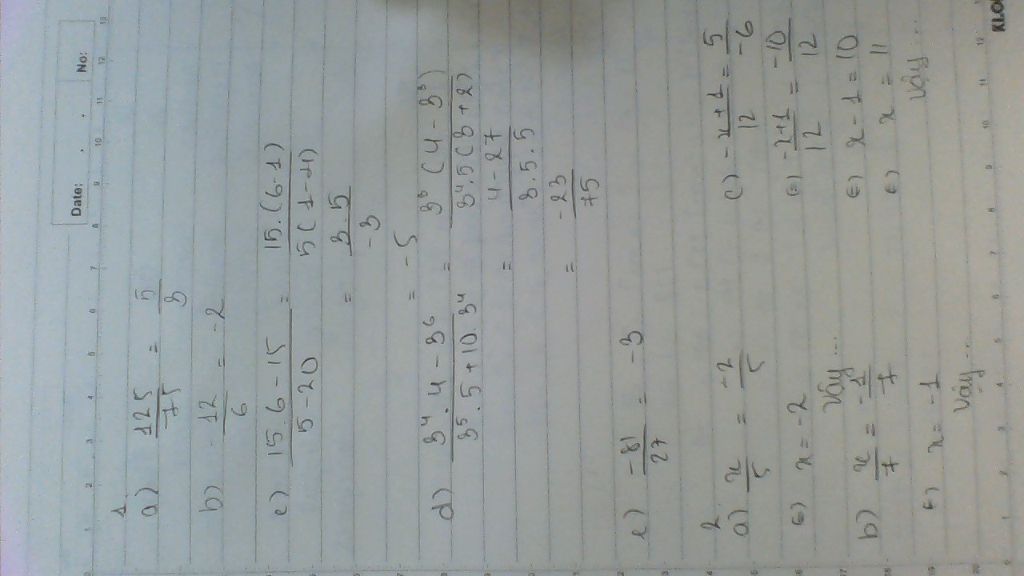 Date: . . No:
1
a) 125/75 = 5/3
b) -12/6 = -2
c) (15.6-15)/(5-20) = 15.(6-1)/5(1-4)
= 3.5/-3
= -5
d) (3⁴.4-3⁶)/(3⁵.5+10.3⁴) = 3³(4-3³)/3⁴.5(3+2)
= (4-27)/3.5.5
= -23/75
e) -81/27 = -3
2
a) x/5 = -2/5
(=) x = -2
Vậy...
b) x/7 = -1/7
(=) x = -1
Vậy...
c) (-x+1)/12 = 5/-6
(=) (-x+1)/12 = -10/12
(=) x-1 = 10
(=) x = 11
Vậy...